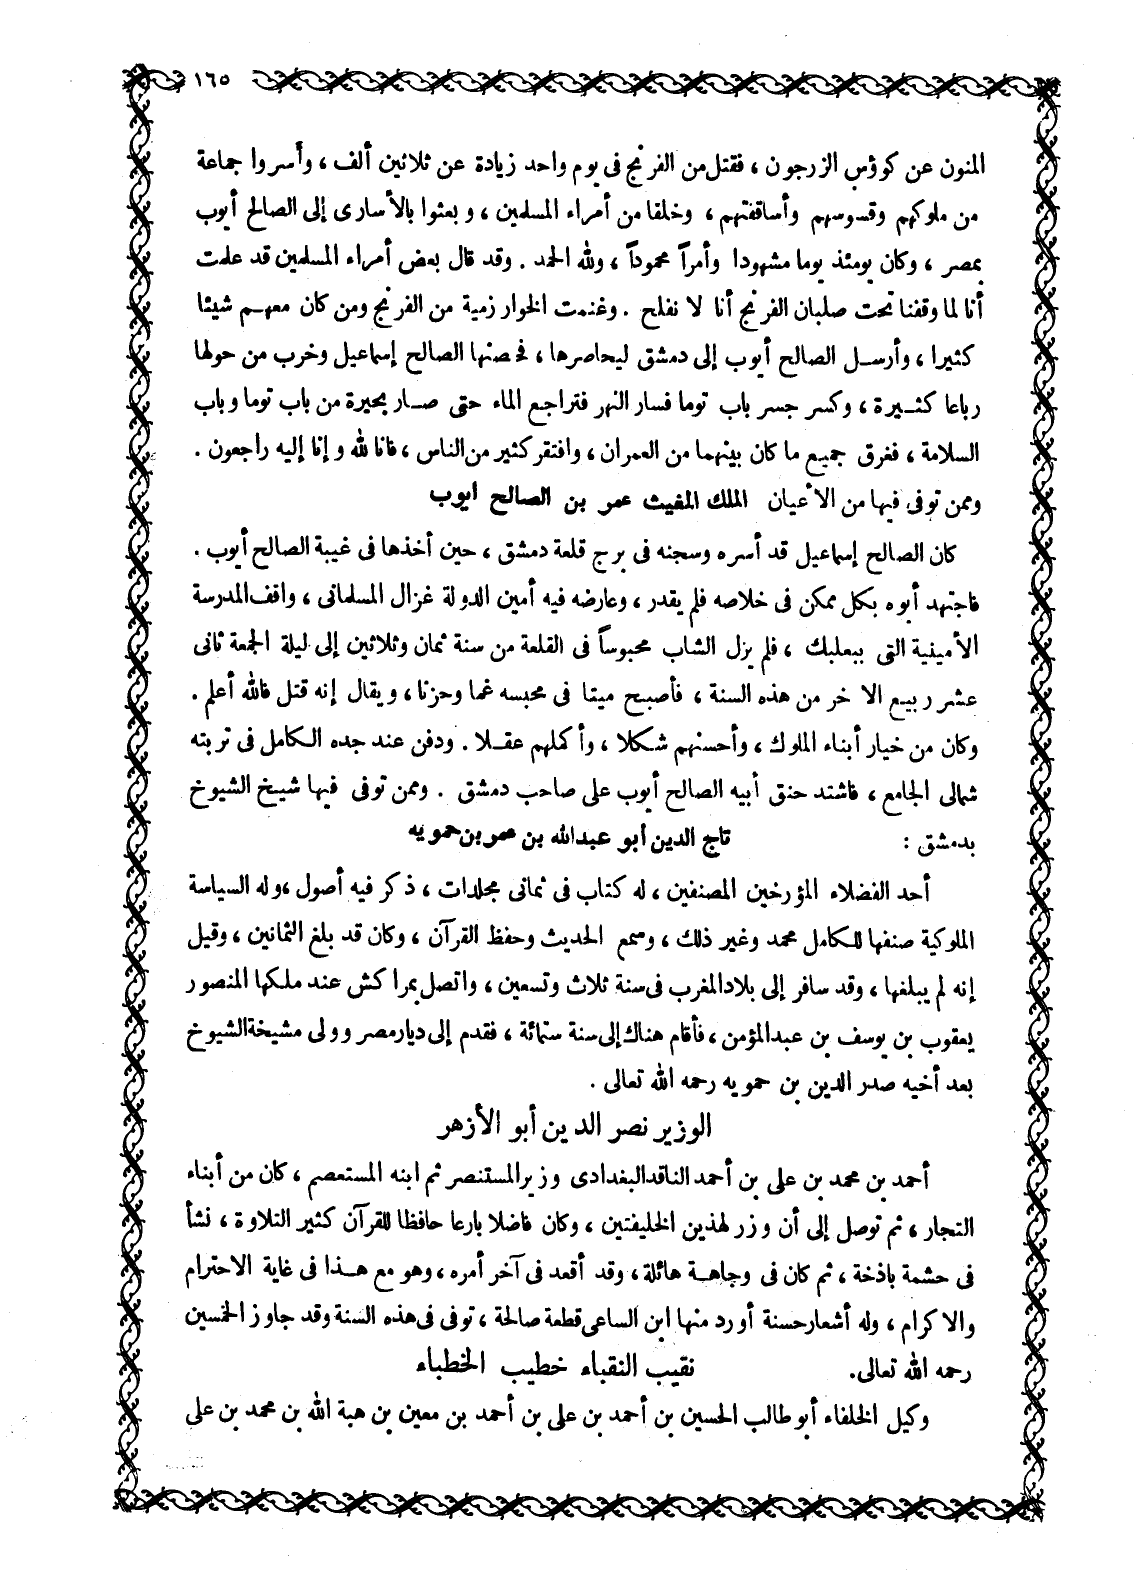 ١٦٥
المنون عن كؤوس الزرجون ، فقتل من الفرنج فى يوم واحد زيادة عن ثلاثين ألف ، وأسروا جماعة
من ملوكهم وقسوسهم وأساقفتهم ، وخلقا من أمراء المسلمين ، وبعثوا بالأسارى إلى الصالح أيوب
بمصر ، وكان يومئذ يوما مشهودا وأمراً محموداً ، ولله الحمد . وقد قال بعض أمراء المسلمين قد علمت
أنا لما وقفنا تحت صلبان الفرنج أنا لا نفلح . وغنمت الخوارزمية من الفرنج ومن كان معهم شيئا
كثيرا ، وأرسل الصالح أيوب إلى دمشق ليحاصرها ، فحصنها الصالح إسماعيل وخرب من حولها
رباعا كثيرة ، وكسر جسر باب توما فسار النهر فتراجع الماء حتى صار بحيرة من باب توما وباب
السلامة ، فغرق جميع ما كان بينهما من العمران ، وافتقر كثير من الناس ، فانا لله وإنا إليه راجعون .
وممن توفى فيها من الأعيان الملك المغيث عمر بن الصالح ايوب
كان الصالح إسماعيل قد أسره وسجنه فى برج قلعة دمشق ، حين أخذها فى غيبة الصالح أيوب .
فاجتهد أبوه بكل ممكن فى خلاصه فلم يقدر ، وعارضه فيه أمين الدولة غزال المسلمانى ، واقف المدرسة
الأمينية التى ببعلبك ، فلم يزل الشاب محبوساً فى القلعة من سنة ثمان وثلاثين إلى ليلة الجمعة ثانى
عشر ربيع الاخر من هذه السنة ، فأصبح ميتا فى محبسه غما وحزنا ، ويقال إنه قتل فالله أعلم .
وكان من خيار أبناء الملوك ، وأحسنهم شكلا ، وأكملهم عقلا . ودفن عند جده الكامل فى تربته
شمالى الجامع ، فاشتد حنق أبيه الصالح أيوب على صاحب دمشق . وممن توفى فيها شيخ الشيوخ
بدمشق : تاج الدين أبو عبدالله بن عمر بن حمويه
أحد الفضلاء المؤرخين المصنفين ، له كتاب فى ثمانى مجلدات ، ذكر فيه أصول ، وله السياسة
الملوكية صنفها للكامل محمد وغير ذلك ، وسمع الحديث وحفظ القرآن ، وكان قد بلغ الثمانين ، وقيل
إنه لم يبلغها ، وقد سافر إلى بلاد المغرب فى سنة ثلاث وتسعين ، واتصل بمراكش عند ملكها المنصور
يعقوب بن يوسف بن عبد المؤمن ، فأقام هناك إلى سنة ستمائة ، فقدم إلى ديار مصر وولى مشيخة الشيوخ
بعد أخيه صدر الدين بن حمويه رحمه الله تعالى .
الوزير نصر الدين أبو الأزهر
أحمد بن محمد بن على بن أحمد الناقد البغدادى وزير المستنصر ثم ابنه المستعصم ، كان من أبناء
التجار ، ثم توصل إلى أن وزر لهذين الخليفتين ، وكان فاضلا بارعا حافظا للقرآن كثير التلاوة ، نشأ
فى حشمة باذخة ، ثم كان فى وجاهة هائلة ، وقد أقعد فى آخر أمره ، وهو مع هذا فى غاية الاحترام
والاكرام ، وله أشعار حسنة أورد منها ابن الساعى قطعة صالحة ، توفى فى هذه السنة وقد جاوز الخمسين
رحمه الله تعالى. نقيب النقباء خطيب الخطباء
وكيل الخلفاء أبو طالب الحسين بن أحمد بن على بن أحمد بن معين بن هبة الله بن محمد بن على